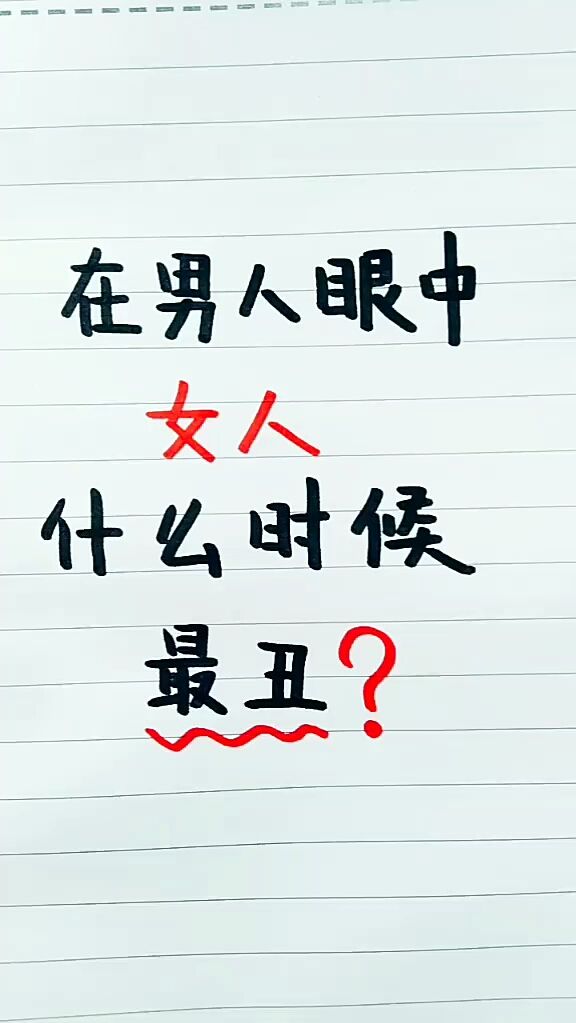 在男人眼中
女人
什么时候
最丑?